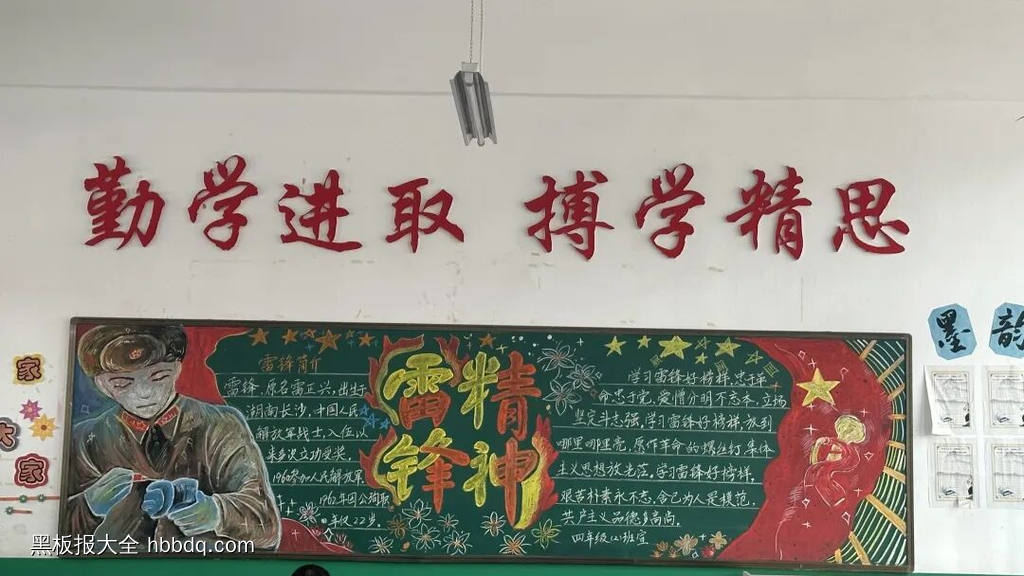 勤学进取 搏学精思
雷锋简介
雷锋 原名雷正兴,出生于
湖南长沙,中国人民
解放军战士,入伍以
来多次立功受奖。
1960参加人民解放军
1962年因公殉职
年仅22岁。
雷锋
精神
学习雷锋好榜样,忠于革
命忠于党,爱憎分明不忘本,立场
坚定斗志强,学习雷锋好榜样,放到
哪里哪里亮,愿做革命的螺丝钉,集体
主义思想放光芒,学习雷锋好榜样,
艰苦朴素永不忘,舍己为人是模范,
共产主义品德多高尚。
四年级(2)班宣
墨韵
家
大
家
黑板报大全 hbbdq.com